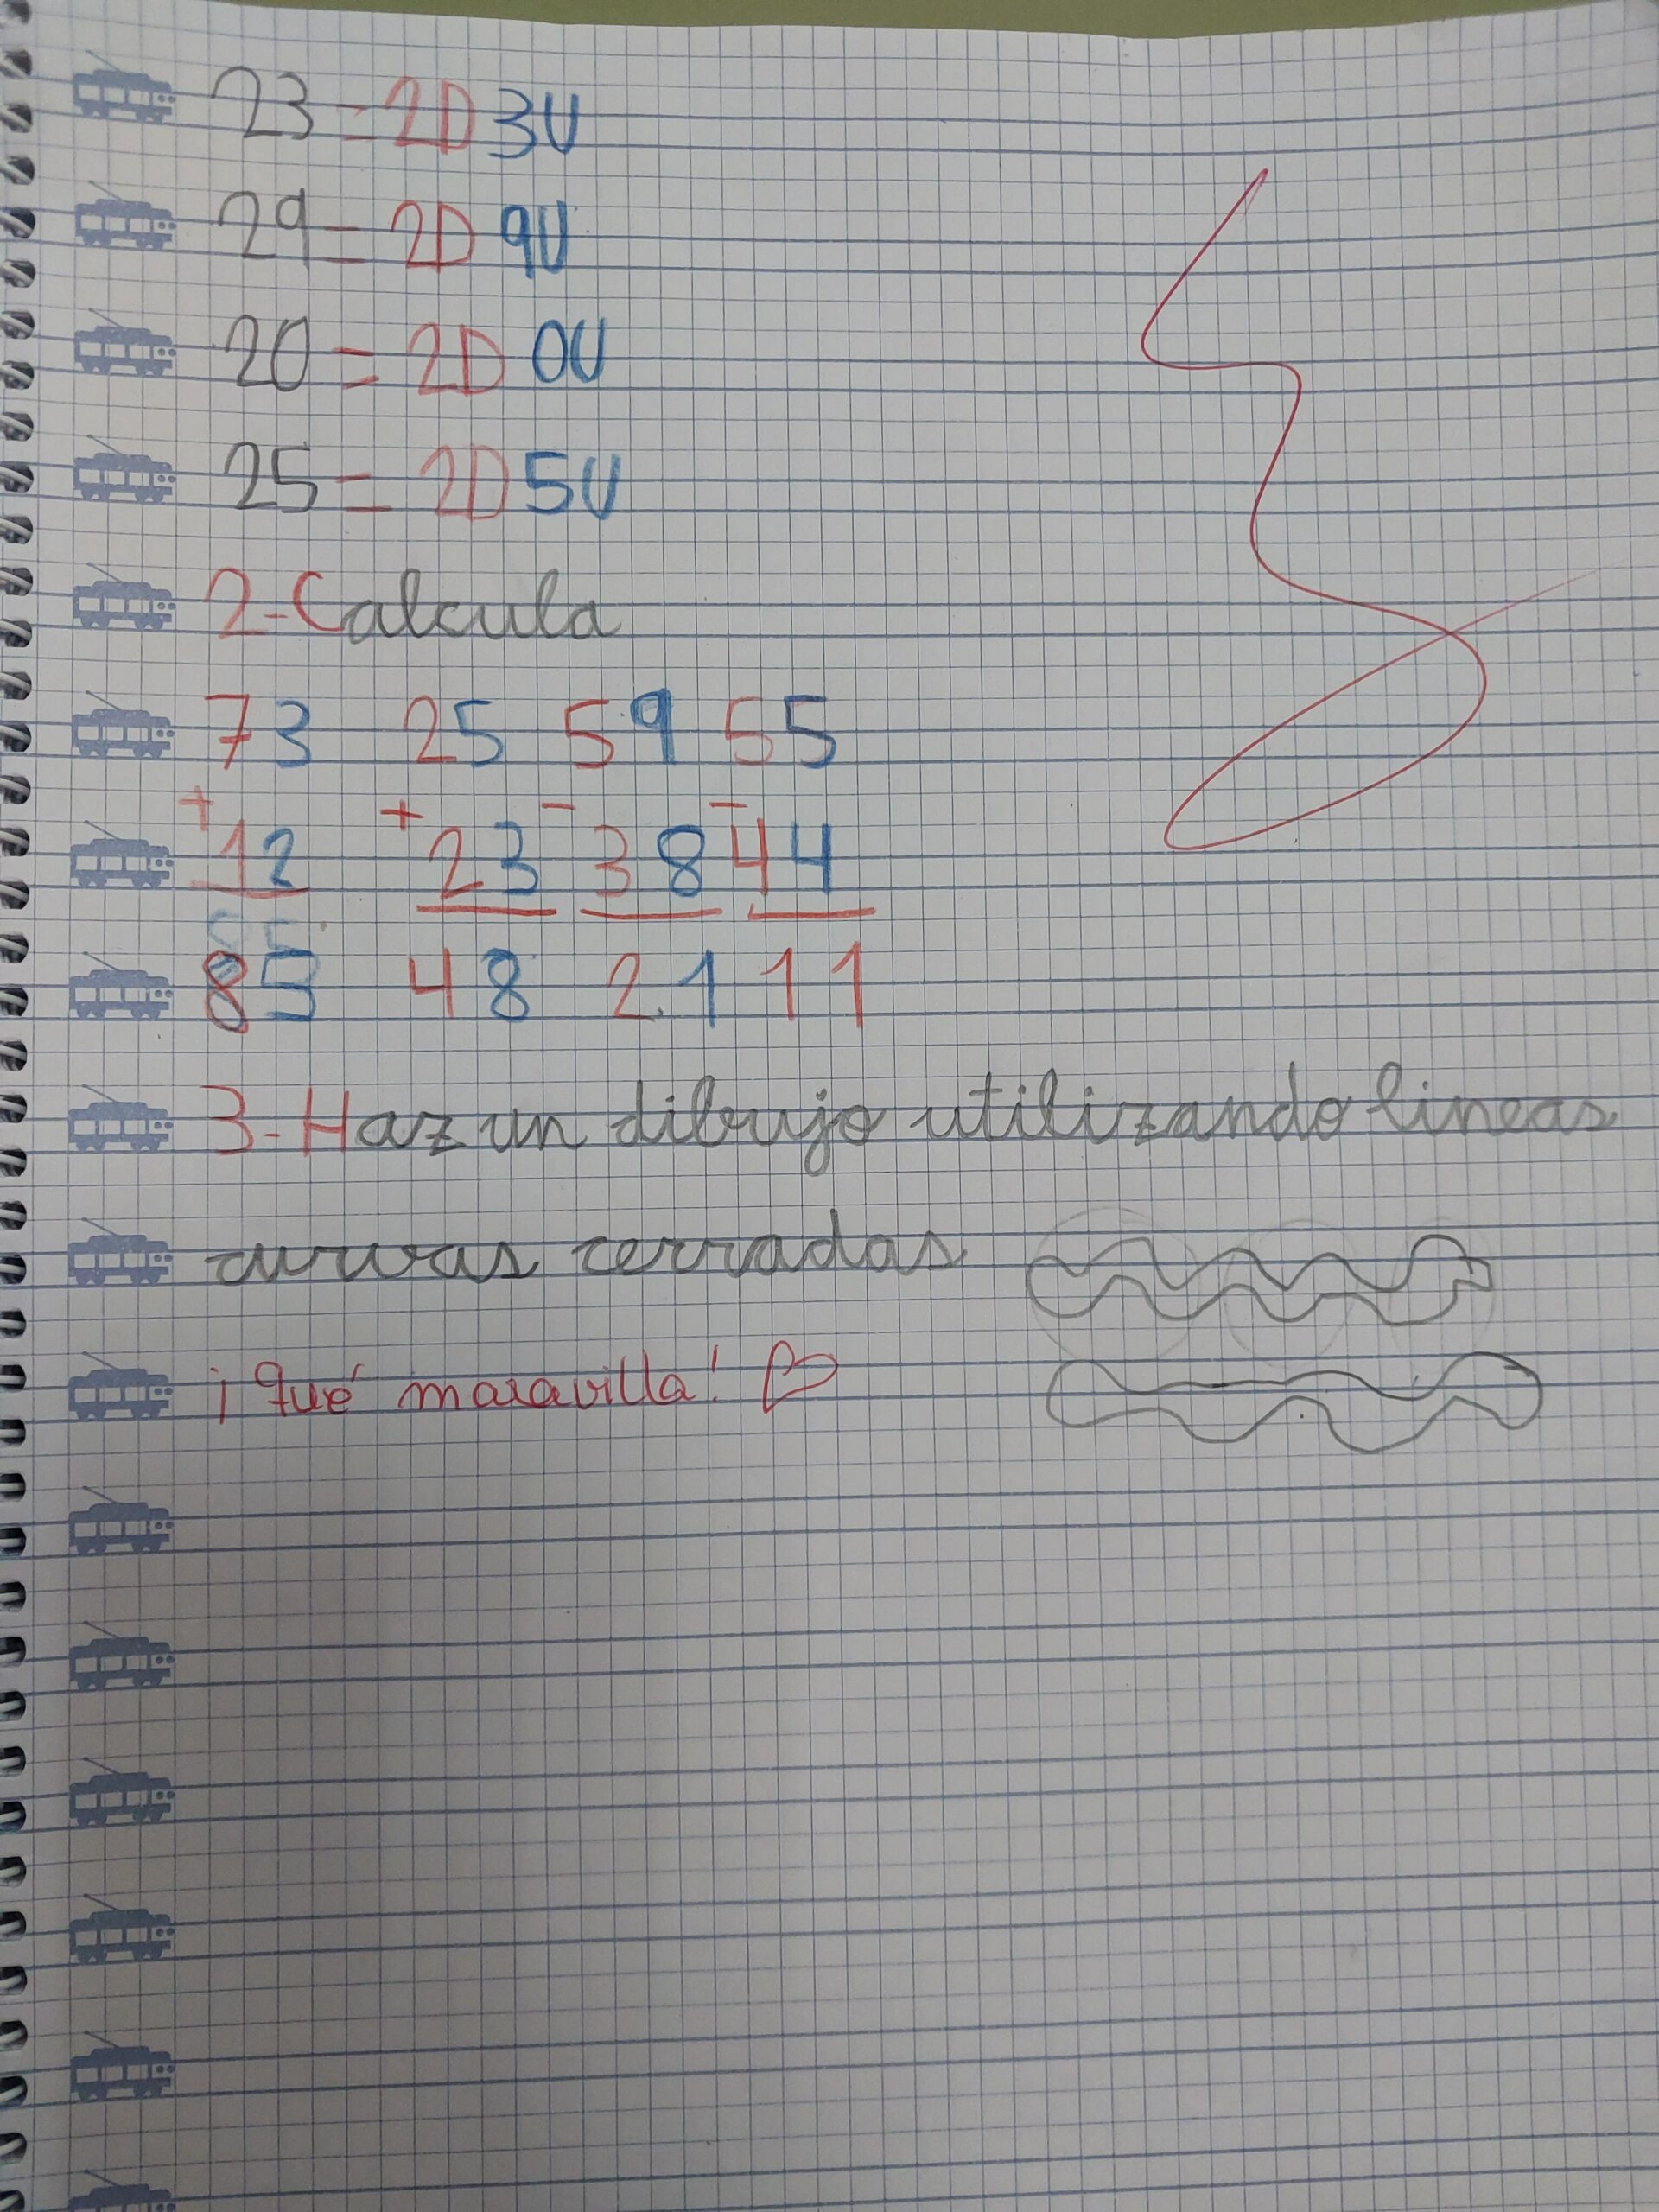 23 = 2D 3U
29 = 2D 9U
20 = 2D 0U
25 = 2D 5U
2-Calcula
73 25 59 55
+ 12 + 23 - 38 - 44
85 48 21 11
3-Haz un dibujo utilizando lineas
curvas cerradas
¡Qué maravilla!